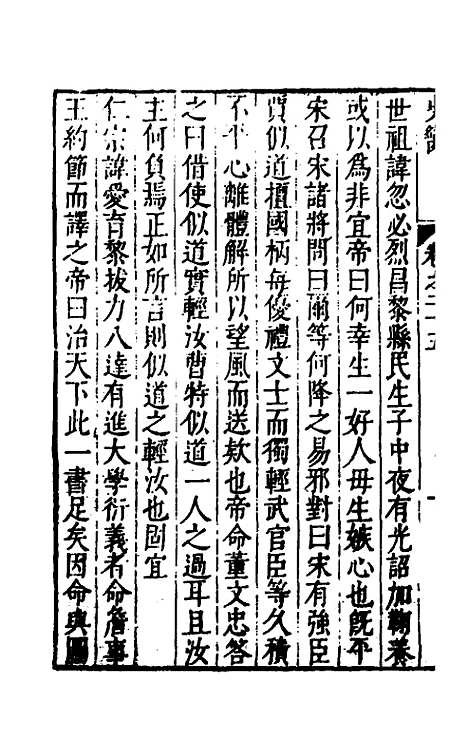 卷之二十五
世祖諱忽必烈昌黎縣民生子中夜有光詔加鞠養
或以爲非宜帝曰何幸生一好人毋生嫉心也旣平
宋召宋諸將問曰爾等何降之易邪對曰宋有強臣
賈似道擅國柄每優禮文士而獨輕武官臣等久積
不平心離體解所以望風而送欵也帝命董文忠答
之曰借使似道實輕汝曹特似道一人之過耳且汝
主何負焉正如所言則似道之輕汝也固宜
仁宗諱愛育黎拔力八達有進大學衍義者命詹事
王約節而譯之帝曰治天下此一書足矣因命與圖